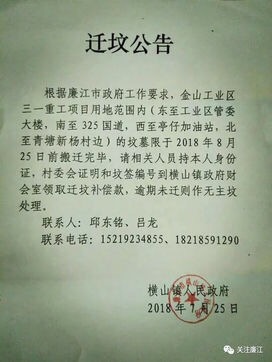 迁坟公告
根据廉江市政府工作要求，金山工业区
三一重工项目用地范围内（东至工业区管委
大楼，南至 325 国道，西至亭仔加油站，北
至青塘新杨村边）的坟墓限于 2018 年 8 月
25 日前搬迁完毕，请相关人员持本人身份
证，村委会证明和坟签编号到横山镇政府财
会室领取迁坟补偿款，逾期未迁则作无主坟
处理。
联系人：邱东铭、吕龙
联系电话：15219234855、18218591290
横山镇人民政府
2018 年 7 月 25 日
关注廉江